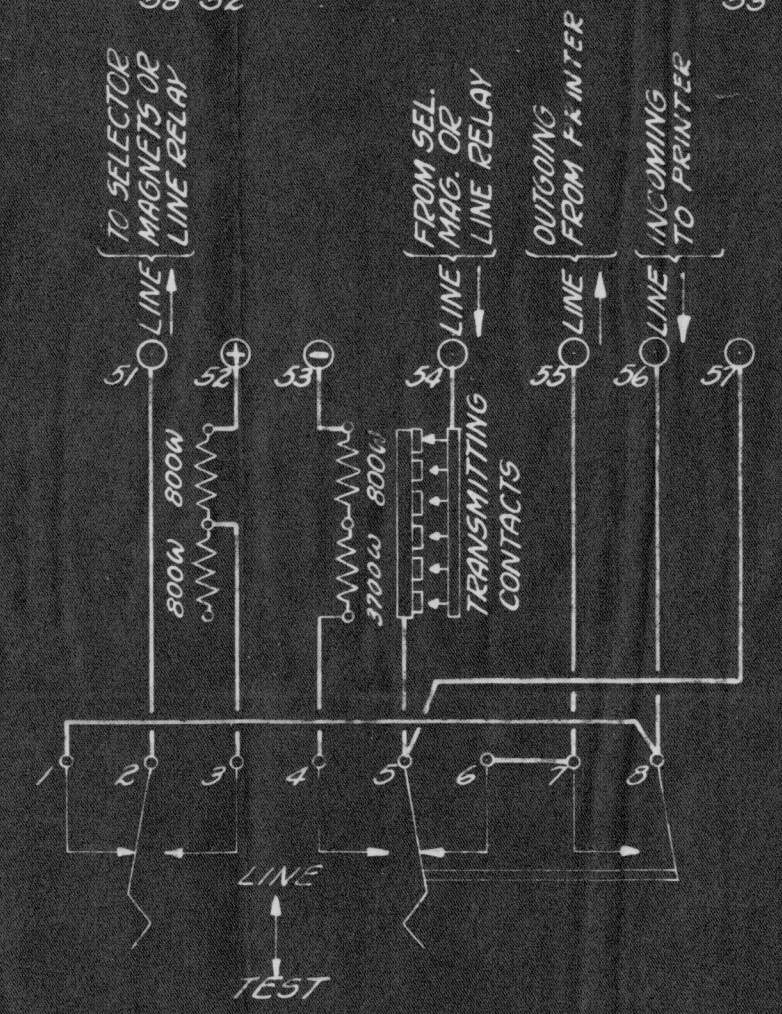 58 52
53
TO SELECTOR
MAGNETS OR
LINE RELAY
LINE
FROM SEL.
MAG. OR
LINE RELAY
LINE
OUTGOING
FROM PRINTER
LINE
INCOMING
TO PRINTER
LINE
51
52
+
53
-
54
55
56
57
800W 800W
3700W 800W
TRANSMITTING
CONTACTS
1
2
3
4
5
6
7
8
LINE
TEST